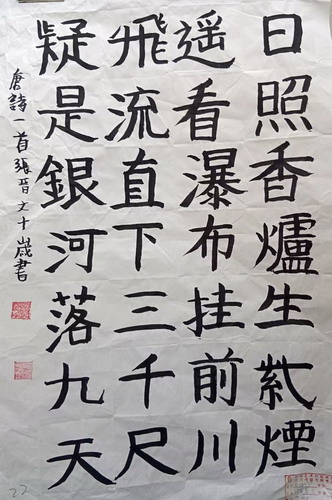 日照香爐生紫煙
遥看瀑布挂前川
飛流直下三千尺
疑是銀河落九天
唐詩一首張晋文十歲書
22